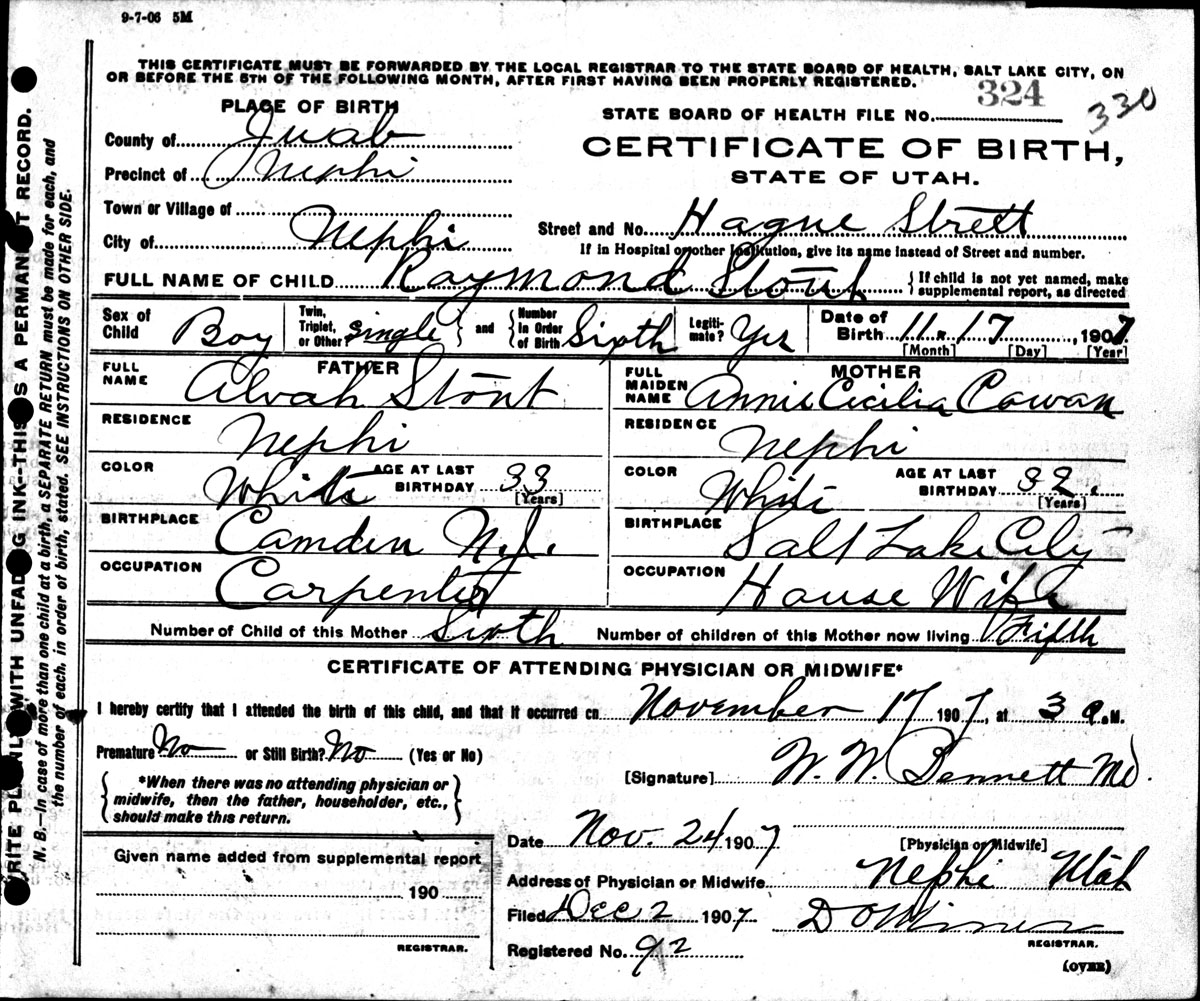 9-7-06 5M
THIS CERTIFICATE MUST BE FORWARDED BY THE LOCAL REGISTRAR TO THE STATE BOARD OF HEALTH, SALT LAKE CITY, ON
OR BEFORE THE 5TH OF THE FOLLOWING MONTH, AFTER FIRST HAVING BEEN PROPERLY REGISTERED.
PLACE OF BIRTH
324
330
STATE BOARD OF HEALTH FILE NO.
County of Juab
CERTIFICATE OF BIRTH,
Precinct of Nephi
STATE OF UTAH.
Town or Village of
Street and No. Hague Strett
City of Nephi
If in Hospital or other Institution, give its name instead of Street and number.
FULL NAME OF CHILD Raymond Stout
{If child is not yet named, make
supplemental report, as directed
Sex of Child Boy
Twin, Triplet, or Other? single
and
Number in Order of Birth Sixth
Legiti-mate? Yes
Date of Birth 11 - 17, 1907.
[Month] [Day] [Year]
FATHER
FULL NAME Alvah Stout
MOTHER
FULL MAIDEN NAME Annie Cicilia Cowan
RESIDENCE Nephi
RESIDENCE Nephi
COLOR White AGE AT LAST BIRTHDAY 33 [Years]
COLOR White AGE AT LAST BIRTHDAY 32. [Years]
BIRTHPLACE Camden N.J.
BIRTHPLACE Salt Lake City
OCCUPATION Carpenter
OCCUPATION House Wife
Number of Child of this Mother Sixth Number of children of this Mother now living Fifth
CERTIFICATE OF ATTENDING PHYSICIAN OR MIDWIFE*
I hereby certify that I attended the birth of this child, and that it occurred on November 17 1907, at 3 a.M.
Premature No or Still Birth? No (Yes or No)
[Signature] W. W. Bennett Md.
{*When there was no attending physician or
midwife, then the father, householder, etc.,
should make this return.}
Date Nov. 24 1907
[Physician or Midwife]
Given name added from supplemental report
190
REGISTRAR.
Address of Physician or Midwife Nephi Utah
Filed Dec 2 1907 D O Miner
REGISTRAR.
Registered No. 92
(OVER)
WRITE PLAINLY WITH UNFADING INK—THIS IS A PERMANENT RECORD.
N. B.—In case of more than one child at a birth, a SEPARATE RETURN must be made for each, and
the number of each, in order of birth, stated. SEE INSTRUCTIONS ON OTHER SIDE.